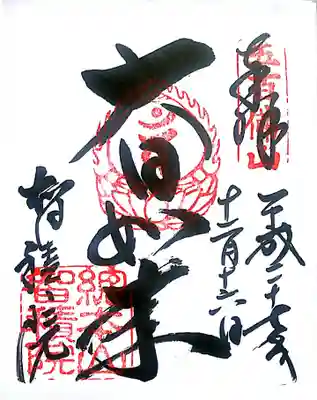 奉拝
平成二十七年
十二月十六日
大日如来
智積院
總本山
智積院